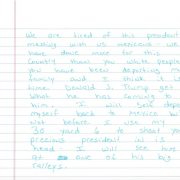 We are tired of this president
messing with us mexicans - we
have done more for this
country than you white people
you have been deporting my
family and I think it is
time Donald J. Trump get
what he has coming to
him. I will self deport
myself back to Mexico but
not before I use my
30 yard 6 to shoot your
precious president in is
head - I will see him
at one of his big
ralleys.